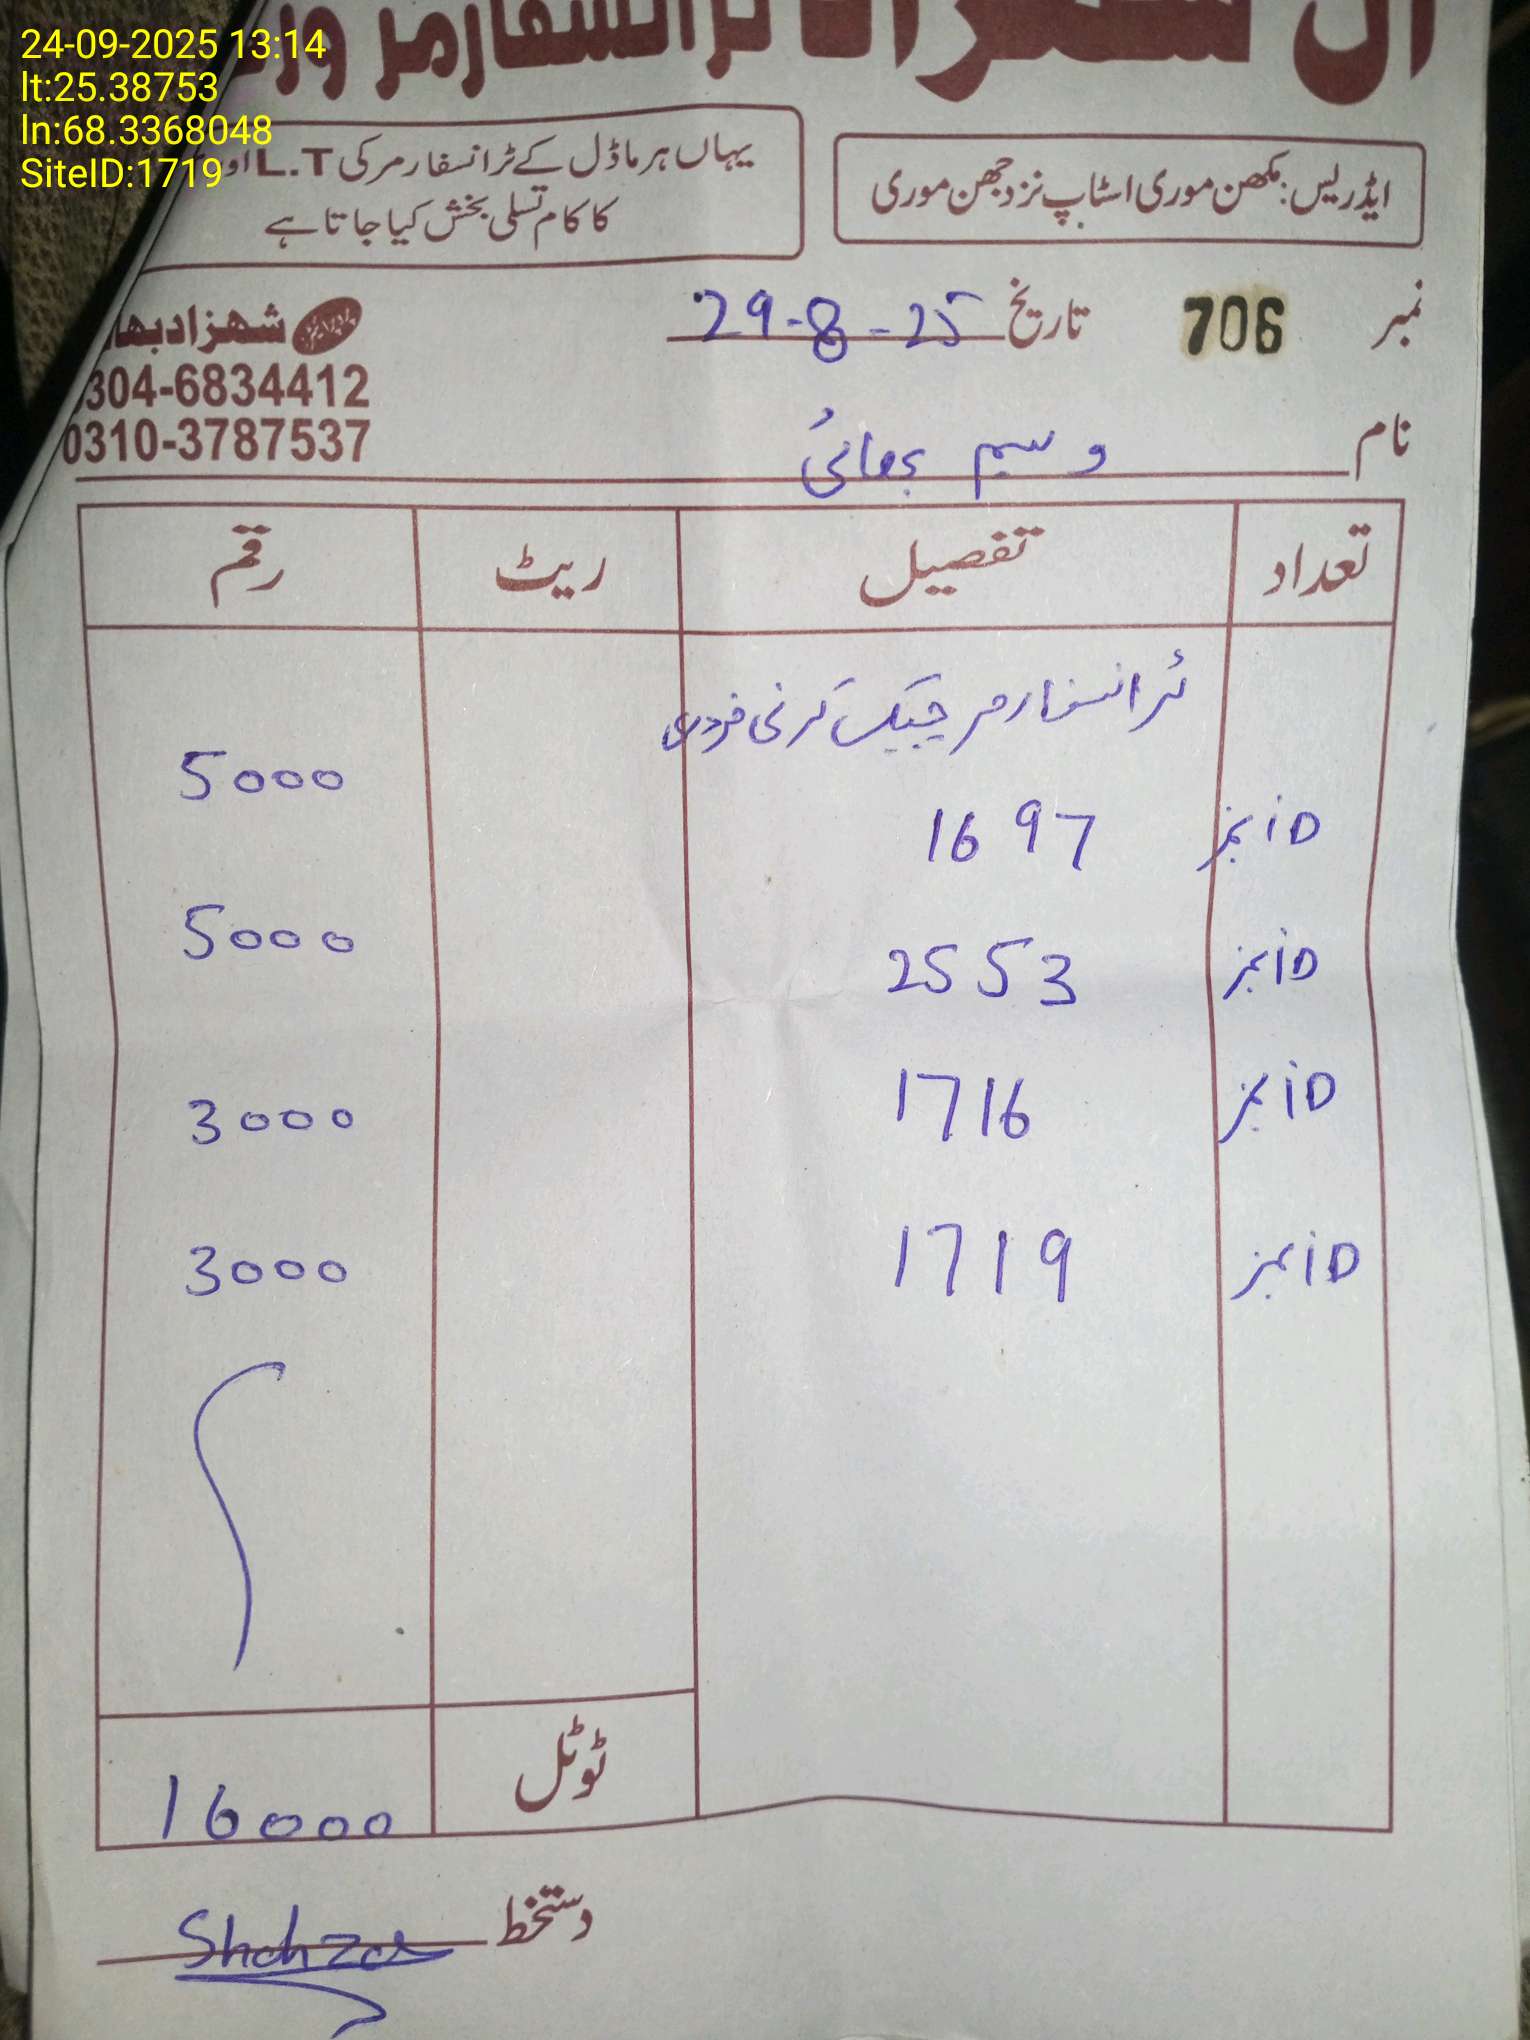 24-09-2025 13:14
lt:25.38753
ln:68.3368048
SiteID:1719
ٹرانسفارمر
ایڈریس: مکھن موری اسٹاپ نزد جھن موری
یہاں ہر ماڈل کے ٹرانسفارمر کی L.T او
کا کام تسلی بخش کیا جاتا ہے
نمبر 706 تاریخ 29-8-25
شہزاد بھا
304-6834412
0310-3787537
نام وسیم بھائی
تعداد تفصیل ریٹ رقم
ٹرانسفارمر چیک کرنی مزدوری
5000
iD نمبر 1697
iD نمبر 2553 5000
iD نمبر 1716 3000
iD نمبر 1719 3000
ٹوٹل 16000
دستخط Shahzad